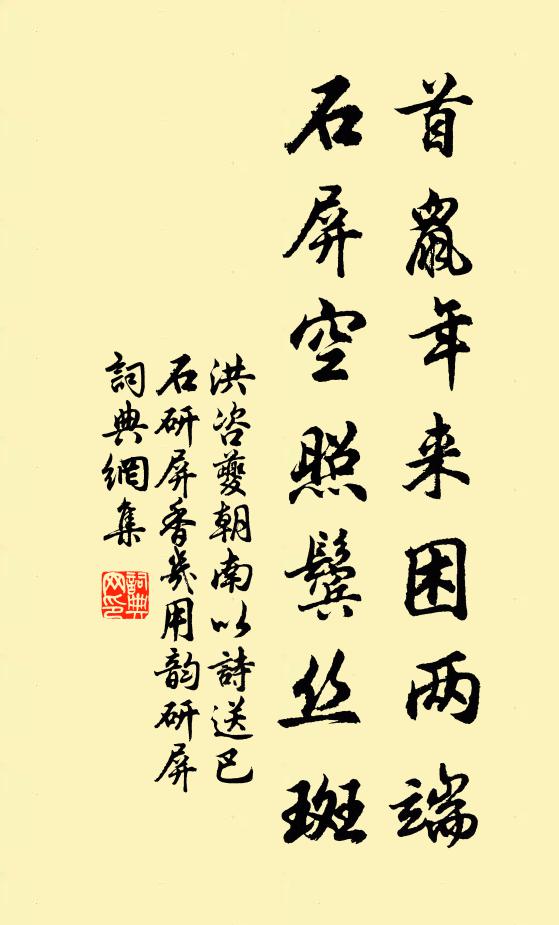 首鼠年来困两端
石屏空照鬓丝斑
洪咨夔朝南以詩送巴
石研屏香几用韵研屏
詞典網集
詞典网印